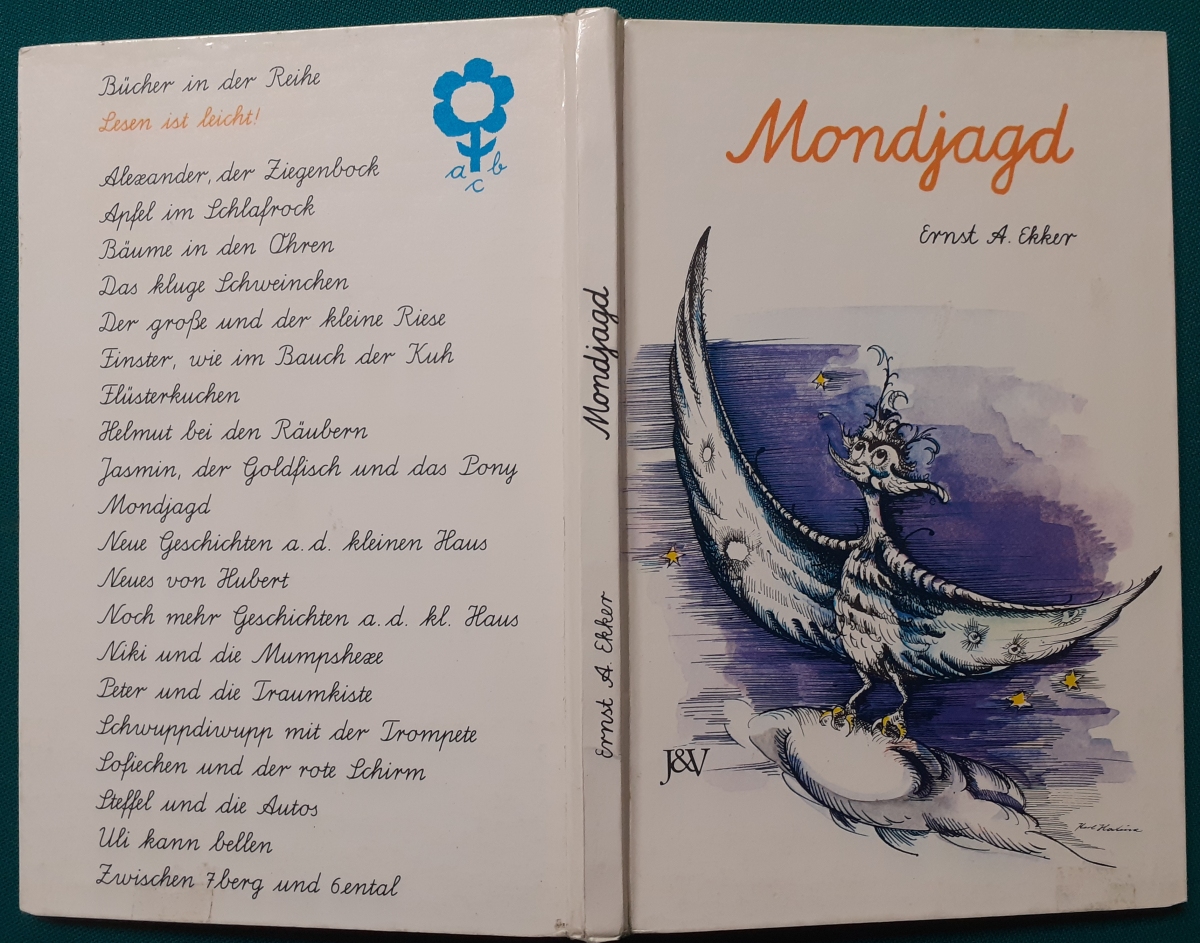 Bücher in der Reihe
Lesen ist leicht!
a b
c
Alexander, der Ziegenbock
Apfel im Schlafrock
Bäume in den Ohren
Das kluge Schweinchen
Der große und der kleine Riese
Finster, wie im Bauch der Kuh
Flüsterkuchen
Helmut bei den Räubern
Jasmin, der Goldfisch und das Pony
Mondjagd
Neue Geschichten a. d. kleinen Haus
Neues von Hubert
Noch mehr Geschichten a. d. kl. Haus
Niki und die Mumpshexe
Peter und die Traumkiste
Schwuppdiwupp mit der Trompete
Sofiechen und der rote Schirm
Steffel und die Autos
Uli kann bellen
Zwischen 7berg und 6ental
Ernst A. Ekker
Mondjagd
Mondjagd
Ernst A. Ekker
J&V